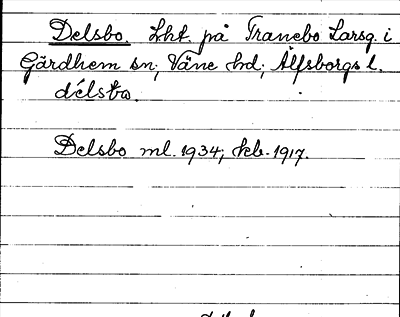 Delsbo. Lht. på Tranebo Larsg. i
Gärdhem sn; Väne hd; Älfsborgs l.
délsbω.
Delsbo ml. 1934; kb. 1917.